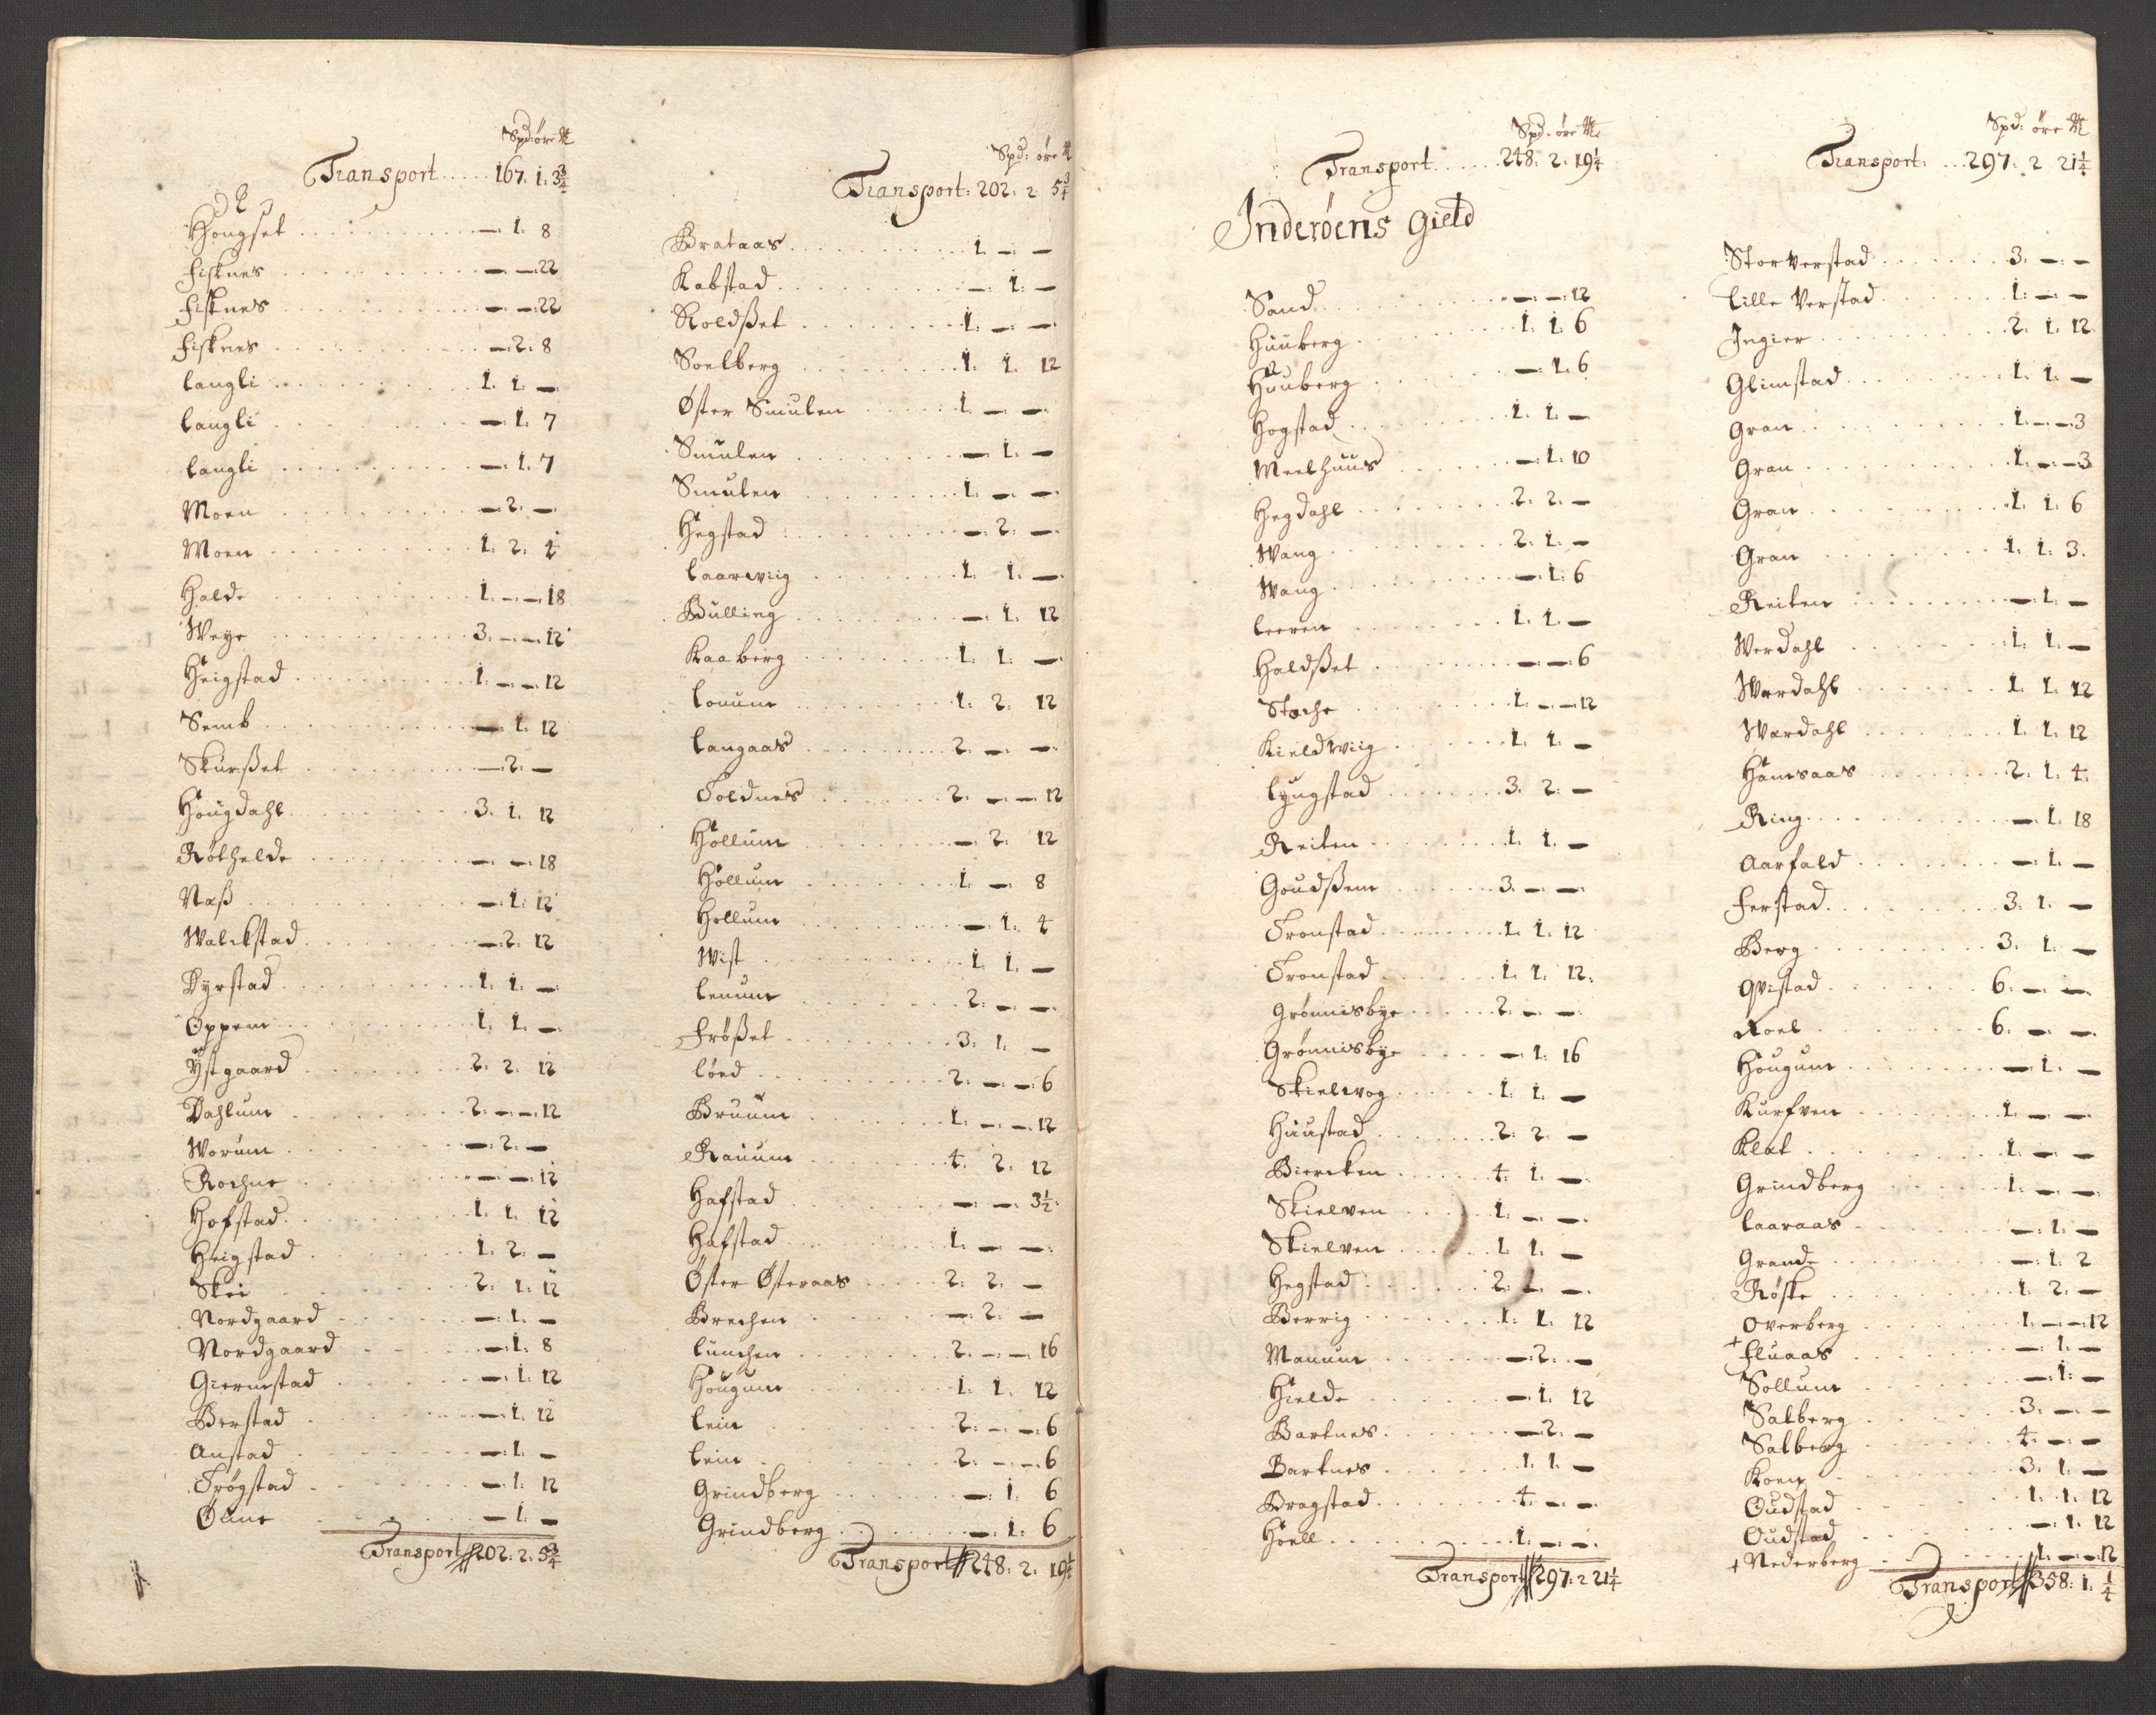 Spd: öre ₥
Transport ..... 167. 1. 3¾
Hougset ..... —. 1. 8
Fisknes ..... —. —. 22
Fisknes ..... —. —. 22
Fisknes ..... —. 2. 8
Langli ..... 1. 1. —
Langli ..... —. 1. 7
Langli ..... —. 1. 7
Moen ..... —. 2. —
Moen ..... 1. 2. 4
Halde ..... 1. —. 18
Weye ..... 3. —. 12
Heigstad ..... 1. —. 12
Semb ..... —. 1. 12
Skurßet ..... —. 2. —
Hougdahl ..... 3. 1. 12
Röthelde ..... —. —. 18
Naß ..... —. 1. 12
Walckstad ..... —. 2. 12
Dyrstad ..... 1. 1. —
Oppem ..... 1. 1. —
Ystgaard ..... 2. 2. 12
Dahlum ..... 2. —. 12
Worum ..... —. 2. —
Rochne ..... —. —. 12
Hofstad ..... 1. 1. 12
Heigstad ..... 1. 2. —
Skei ..... 2. 1. 12
Nordgaard ..... —. 1. —
Nordgaard ..... —. 1. 8
Giermstad ..... —. 1. 12
Berstad ..... —. 1. 12
Anstad ..... —. 1. —
Trögstad ..... —. 1. 12
Öune ..... —. 1. —
Transport 202. 2. 5¾
Spd: öre ₥
Transport: 202. 2 5¾
Brataas ..... 1. —. —
Kabstad ..... —. 1. —
Roldßet ..... 1. —. —
Soelberg ..... 1. 1. 12
Öster Smulen ..... 1. —. —
Smulen ..... —. 1. —
Smulen ..... 1. —. —
Hegstad ..... —. 2. —
Laarwiig ..... 1. 1. —
Bulling ..... —. 1. 12
Kaaberg ..... 1. 1. —
Louum ..... 1. 2. 12
Langaas ..... 2. —. —
Toldnes ..... 2. —. 12
Hollum ..... —. 2. 12
Hollum ..... 1. —. 8
Hollum ..... —. 1. 4
Wist ..... 1. 1. —
Lenum ..... 2. —. —
Frößet ..... 3. 1. —
Löed ..... 2. —. 6
Bruum ..... 1. —. 12
Rauum ..... 4. 2. 12
Hafstad ..... —. —. 3½
Hafstad ..... 1. —. —
Öster Österaas ..... 2. 2. —
Brechen ..... —. 2. —
Lunchen ..... 2. —. 16
Hougum ..... 1. 1. 12
Lein ..... 2. —. 6
Lein ..... 2. —. 6
Grindberg ..... —. 1. 6
Grindberg ..... —. 1. 6
Transport 248. 2. 19¼
Spd: öre ₥
Transport ..... 248. 2. 19¼
Inderöens Gield
Sand ..... —. —. 12
Huuberg ..... 1. 1. 6
Huuberg ..... —. 1. 6
Hogstad ..... 1. 1. —
Meelhuus ..... —. 1. 10
Hegdahl ..... 2. 2. —
Wang ..... 2. 1. —
Wang ..... —. 1. 6
Leeren ..... 1. 1. —
Haldßet ..... —. —. 6
Stoche ..... 1. —. 12
Kieldwiig ..... 1. 1. —
Lyngstad ..... 3. 2. —
Reiten ..... 1. 1. —
Goudßem ..... 3. —. —
Tronstad ..... 1. 1. 12
Tronstad ..... 1. 1. 12
Grönnisbye ..... 2. —. —
Grönnisbye ..... —. 1. 16
Skielwog ..... 1. 1. —
Huustad ..... 2. 2. —
Biercken ..... 4. 1. —
Skielven ..... 1. —. —
Skielven ..... 1. 1. —
Hegstad ..... 2. —. —
Berrig ..... 1. 1. 12
Manum ..... —. 2. —
Hielde ..... —. 1. 12
Bartnes ..... —. 2. —
Bartnes ..... 1. 1. —
Bragstad ..... 4. —. —
Hoell ..... 1. —. —
Transport 297. 2 21¼
Spd: öre ₥
Transport: ... 297. 2 21¼
Storverstad ..... 3. —. —
Lille Verstad ..... 1. —. —
Ingier ..... 2. 1. 12
Glimstad ..... 1. 1. —
Gran ..... 1. —. 3
Gran ..... 1. —. 3
Gran ..... 1. 1. 6
Gran ..... 1. 1. 3.
Reiten ..... —. 1. —
Werdahl ..... 1. 1. —
Wardahl ..... 1. 1. 12
Wardahl ..... 1. 1. 12
Hamsaas ..... 2. 1. 4
Ring ..... —. 1. 18
Aarfald ..... —. 1. —
Ferstad ..... 3. 1. —
Berg ..... 3. 1. —
Qvistad ..... 6. —. —
Roel ..... 6. —. —
Hougum ..... —. 1. —
Kurfven ..... 1. —. —
Klat ..... 1. —. —
Grindberg ..... 1. —. —
Laaraas ..... —. 1. —
Grande ..... —. 1. 2
Röske ..... 1. 2. —
Overberg ..... 1. —. 12
+ Fluaas ..... —. 1. —
Sollum ..... —. 1. —
Salberg ..... 3. —. —
Salberg ..... 4. —. —
Koen ..... 3. 1. —
Oudstad ..... 1. 1. 12
Oudstad ..... —. 1. 12
+ Nederberg ..... 1. —. 12
Transport 358. 1. ¼